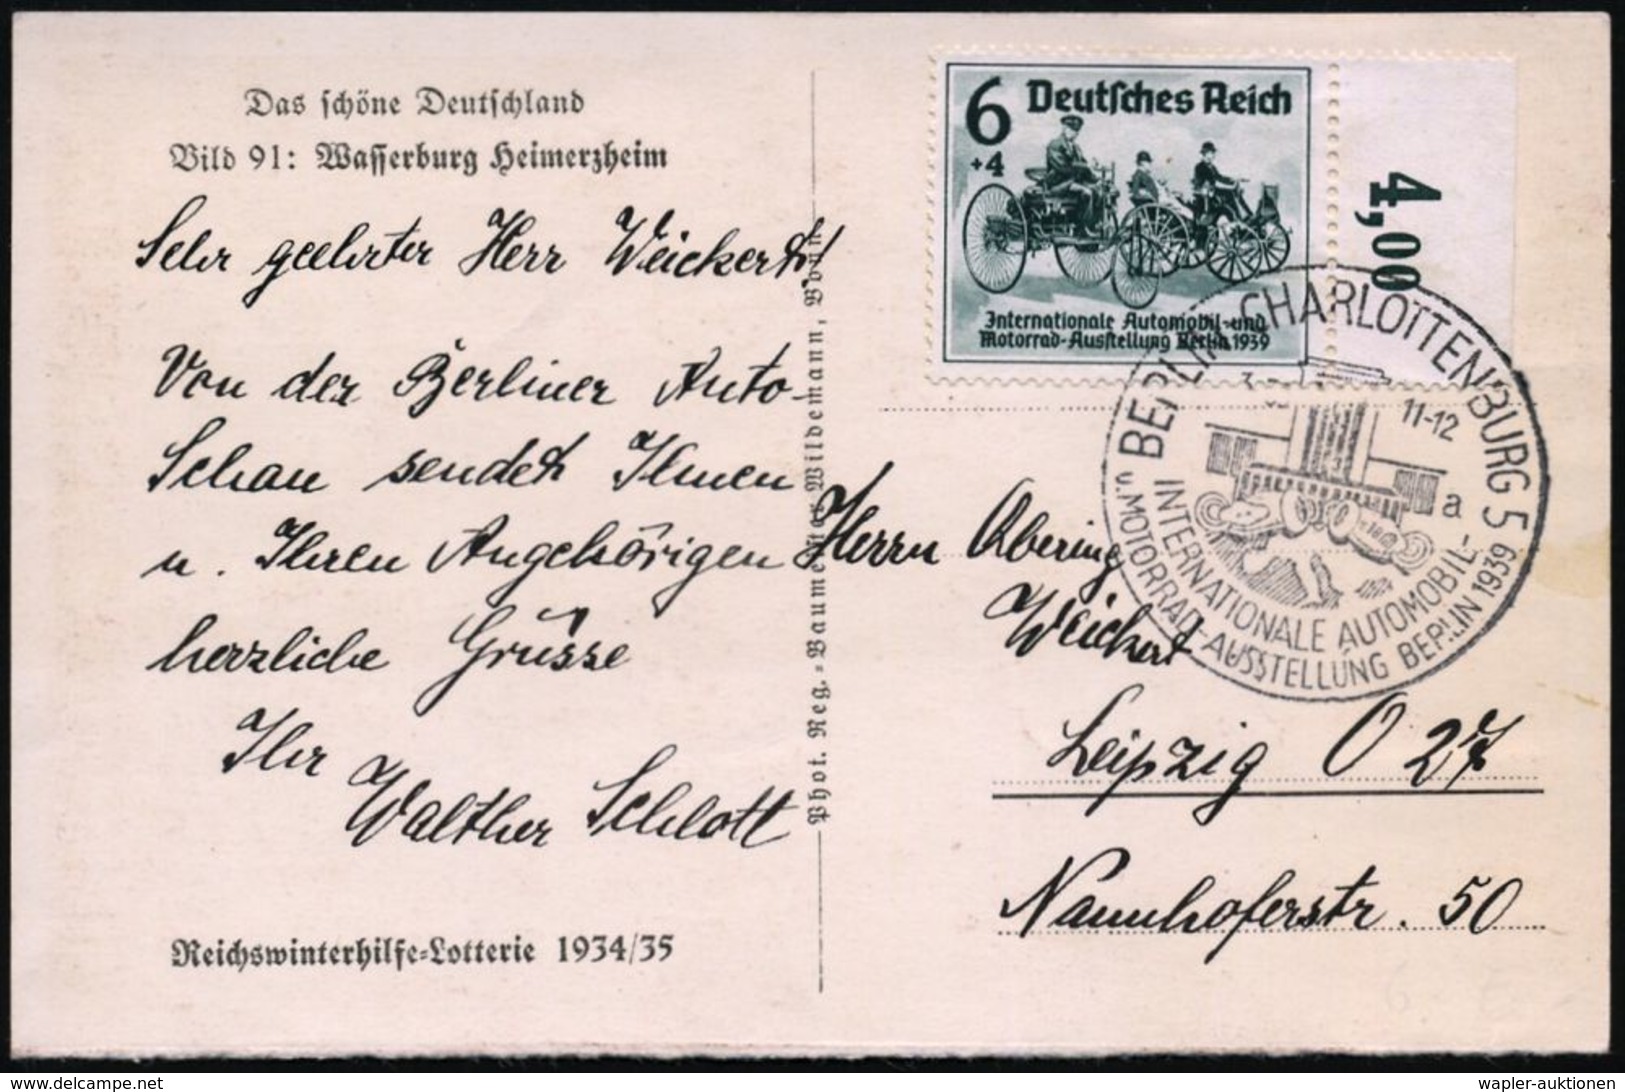 Das schöne Deutschland
Bild 91: Wasserburg Heimerzheim
Sehr geehrter Herr Weickert!
Von der Berliner Auto-
Schau sendet Ihnen
u. Ihren Angehörigen
herzliche Grüsse
Ihr
Walther Schlott
Reichswinterhilfe-Lotterie 1934/35
Phot. Reg.-Baumeister Wildemann, Bonn
6 Deutsches Reich
+4
Internationale Automobil- und
Motorrad-Ausstellung Berlin 1939
4,00
BERLIN-CHARLOTTENBURG 5
11-12
a
INTERNATIONALE AUTOMOBIL-
u. MOTORRAD-AUSSTELLUNG BERLIN 1939
Herrn Obering
Weickert
Leipzig O 27
Naunhoferstr. 50
wapler-auktionen